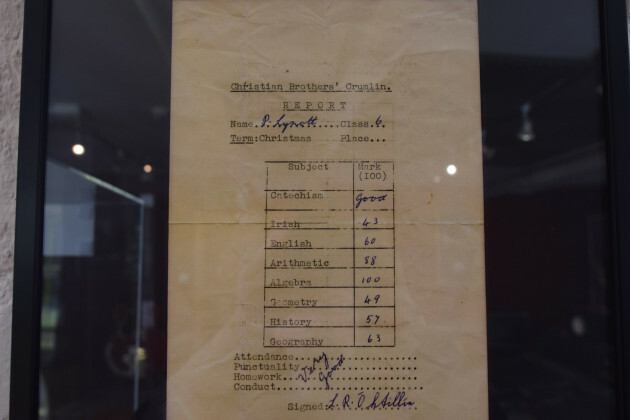 Christian Brothers' Crumlin.
REPORT
Name. P. Lynott....Class.6.
Term:Christmas Place...
Subject Mark (100)
Catechism Good
Irish 43
English 60
Arithmetic 58
Algebra 100
Geometry 49
History 57
Geography 63
Attendance....................
Punctuality...................
Homework...Very Good..........
Conduct.......................
Signed: